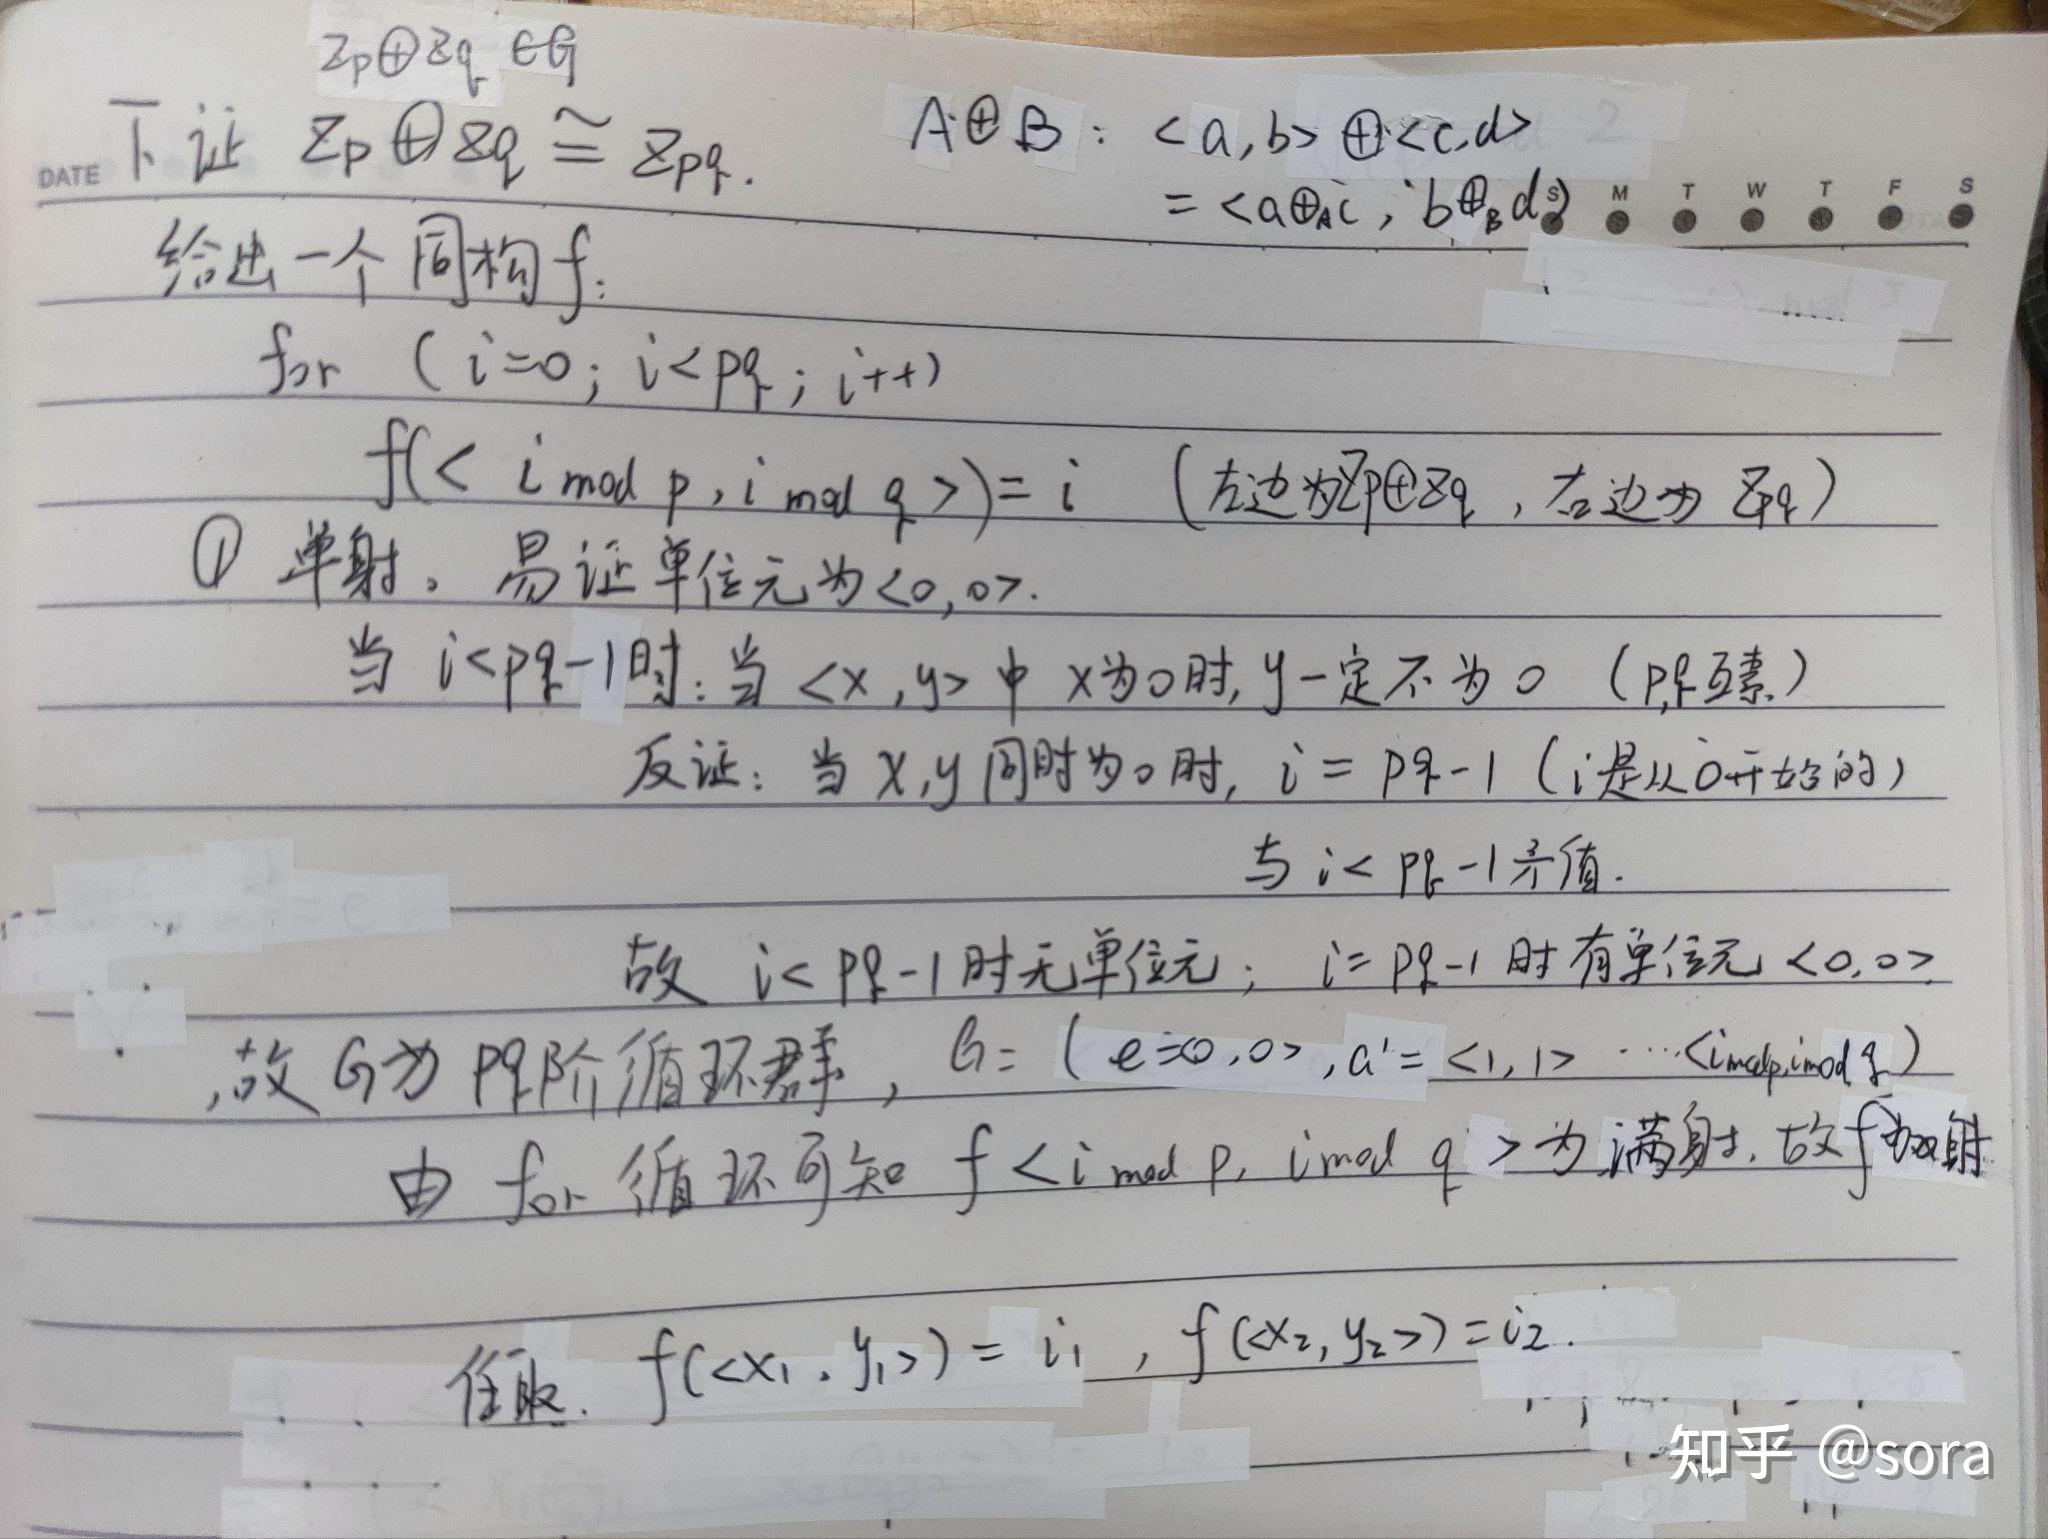 Zp⊕Zq ∈G
下证 Zp⊕Zq ≅ Zpq.
A⊕B: <a,b>⊕<c,d>
= <a⊕_A c, b⊕_B d>
DATE
S M T W T F S
给出一个同构f:
for (i=0; i<pq; i++)
f(< i mod p, i mod q >)= i (左边为Zp⊕Zq, 右边为 Zpq)
① 单射。易证单位元为<0,0>.
当 i<pq-1时:当 <x,y>中 x为0时,y一定不为0 (p,q互素)
反证: 当 x,y同时为0时, i = pq-1 (i是从0开始的)
与 i< pq-1矛值.
故 i< pq-1时无单位元; i= pq-1时有单位元<0,0>
,故G为pq阶循环群, G= ( e=<0,0>, a'= <1,1> ····<i mod p, i mod q)
由 for 循环可知 f<i mod p, i mod q >为满射. 故f为双射
任取. f(<x₁,y₁>) = i₁ , f(<x₂,y₂>)=i₂.
知乎 @sora